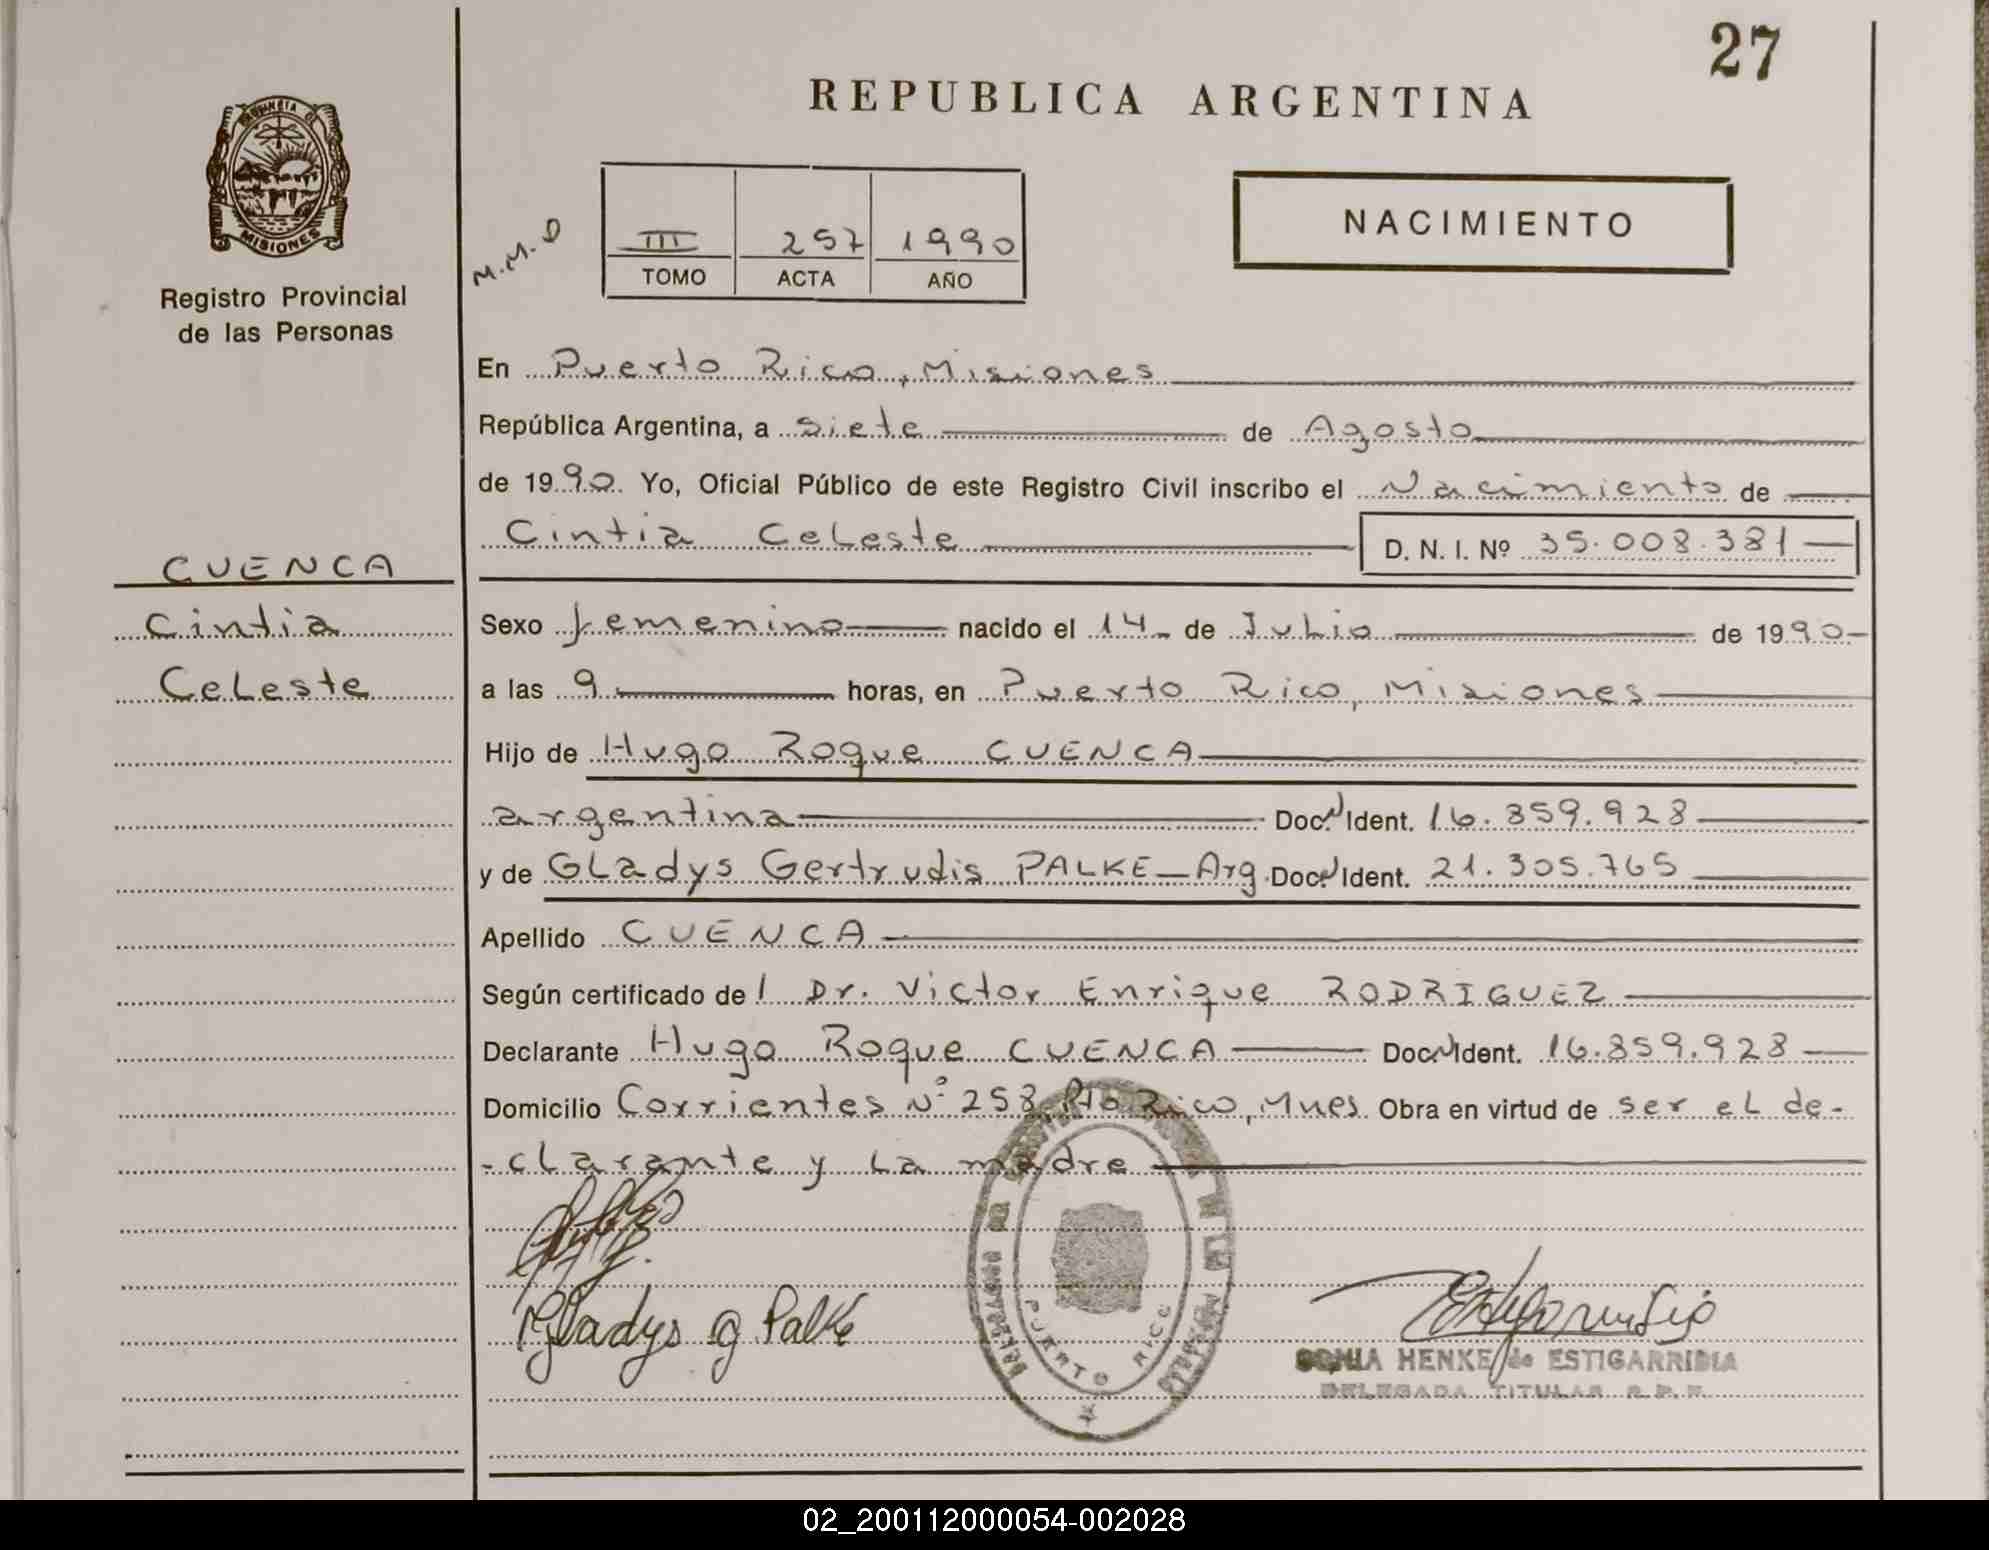 27
REPUBLICA ARGENTINA
PROVINCIA DE
MISIONES
Registro Provincial
de las Personas
M.M.D
III 257 1990
TOMO ACTA AÑO
NACIMIENTO
En Puerto Rico, Misiones
República Argentina, a siete de Agosto
de 1990 Yo, Oficial Público de este Registro Civil inscribo el Nacimiento de
Cintia Celeste D. N. I. Nº 35.008.381
CUENCA
Cintia
Celeste
Sexo femenino nacido el 14 de Julio de 1990
a las 9 horas, en Puerto Rico, Misiones
Hijo de Hugo Roque CUENCA
argentina Doc. Ident. 16.859.928
y de Gladys Gertrudis PALKE - Arg. Doc. Ident. 21.305.765
Apellido CUENCA
Según certificado de l Dr. Victor Enrique RODRIGUEZ
Declarante Hugo Roque CUENCA Doc. Ident. 16.859.928
Domicilio Corrientes Nº 258, Pto Rico, Mnes. Obra en virtud de ser el de-
-clarante y la madre
Gladys G Palke
PUERTO RICO
SONIA HENKE de ESTIGARRIBIA
DELEGADA TITULAR R.P.P.
02_200112000054-002028